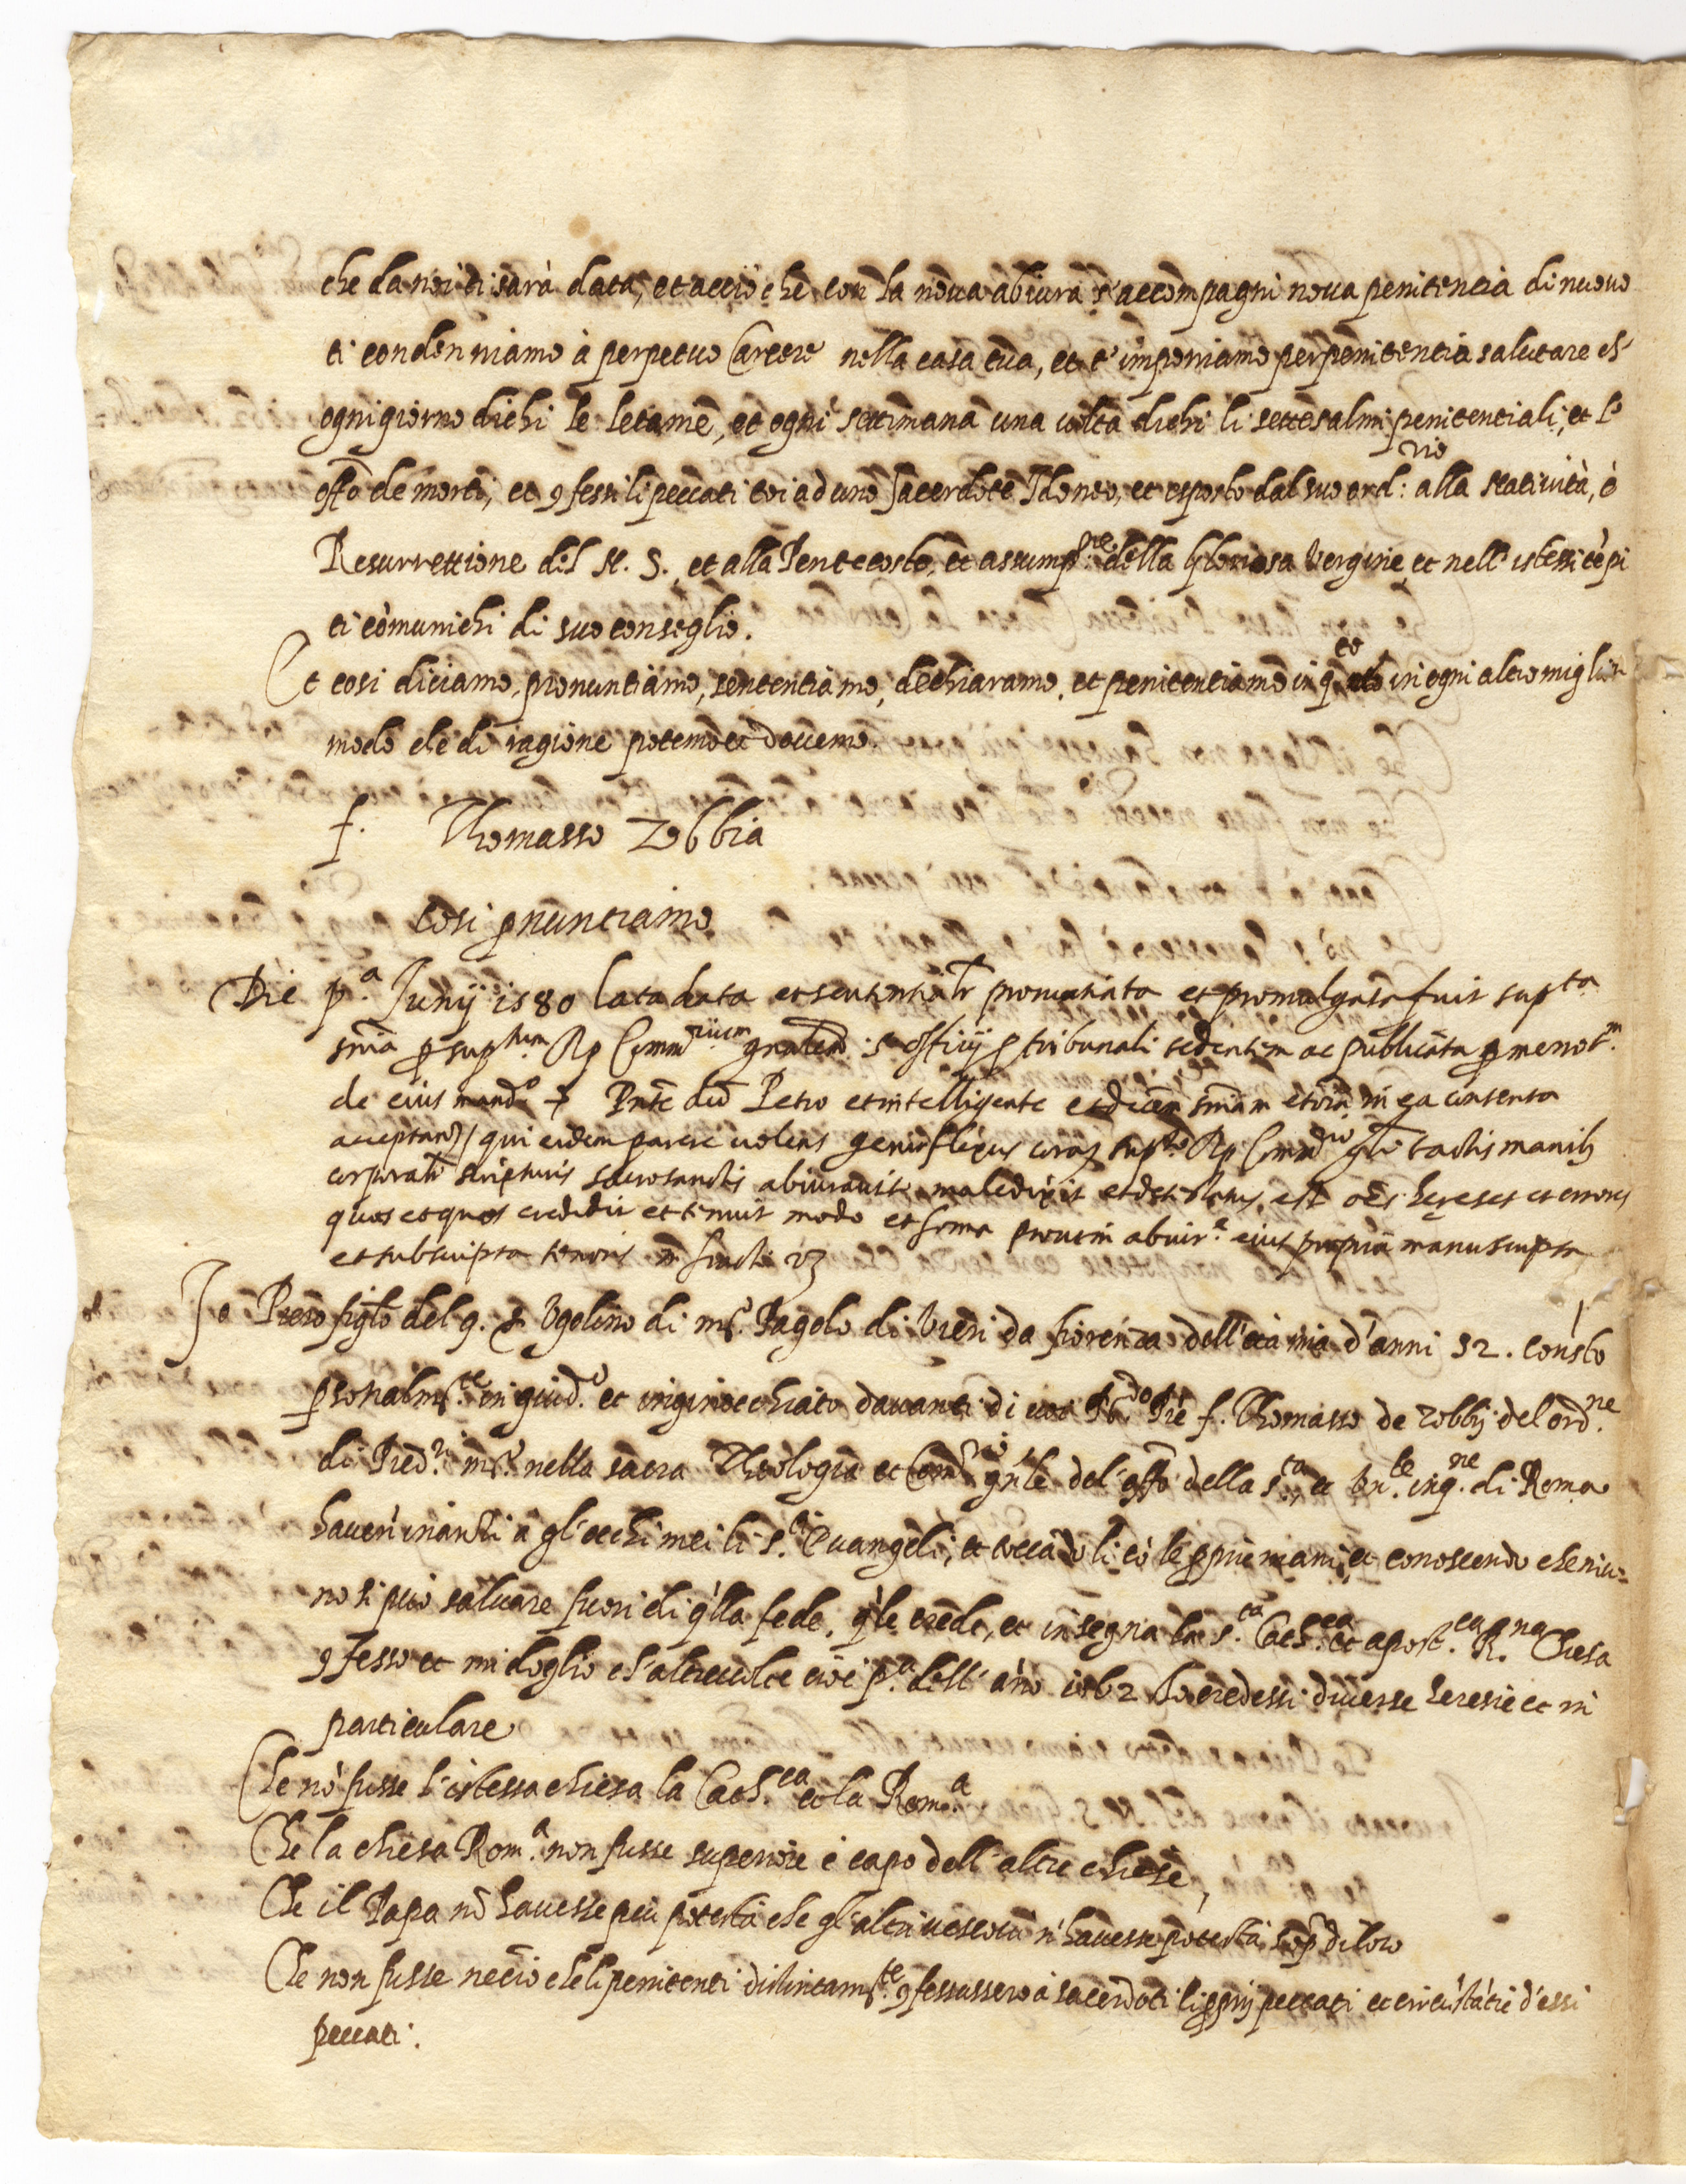 che da noi ti sarà data, et acciò che con la nova abiura s'accompagni nova penitencia di nuovo
ti condenniamo à perpetuo Carcere nella casa tua, et t'imponiamo per penitentia salutare ch'
ogni giorno dichi le letanie, et ogni settimana una volta dichi li sette salmi penitentiali, et l'
offo de morti, et 9fessi li peccati toi ad uno sacerdote Idoneo, et esposto dal suo ord:rio alla Natività, è
Resurrettione del N. S., et alla Pentecoste, et assump.ne della gloriosa Vergine, et nell'istessi tēpi
ti cōmunichi di suo conseglio.
Et cosi diciamo, pronuntiamo, sententiamo, dechiaramo, et penitentiamo in q.to in ogni altro miglior
modo che di ragione potemo et dovemo.
f. Thomasso Zobbia
Cosi pnuntiamo
Die p.a Junij 1580 lata data et sententialr pronuntiata et promulgata fuit supta
snīa p suptum Rp Commrium gnalem s. offitij p tribunali sedentem ac publicata p me not.m
de eius mand.o Pnte dco Petro et intelligente et
acceptan / qui eidem parere volens genuflexus coraʒ supto Rp Commrio gli tactis manibʒ
corporalr scripturis sacrosanctis abiuravit maledixit et detestatus est oēs hereses et errores
quos et quas credidit et tenuit modo et forma prout in abiur.e eius propria manu scripta
et subscripta tenoris
Io Piero figlo del q. Ugolino di mſ. Pagolo di Vieri da fiorenza dell'età mia d'anni 52. Const.o
psonalmte in giud.o et inginocchiato davanti di voi Rdo Prē f. Thomasso de zobbij del ordne
di Pred.ri nella sacra Theologia et Comrio gnle del offo della s.ta, et Un.le inq.ne di Roma
haven inanti à gl'occhi mei li s.ti Evangeli, et toccādoli cō le pprie mani, et conoscendo che niu=
no si può salvare fuori di q'lla fede, q'le crede, et insegna la s.ta Cath.ca et apost.ca R.na Chiesa
9fesso et mi doglio ch'altrevolte cioè p.a dell'āno 1562 Io credessi diverse heresie et in
particulare
Che nō fusse l'istessa chiesa la Cath.ca et la Rom.a
Che la chiesa Rom.a non fusse superiore è capo dell'altre chiese,
Che il Papa nō havesse più potestà che gl'altri vescovi n'havesse potestà sop.a di loro
Che non fusse necēio che li penitenti distintamte 9fessassero à sacerdoti li pprij peccati et circūstātie d'essi
peccati.